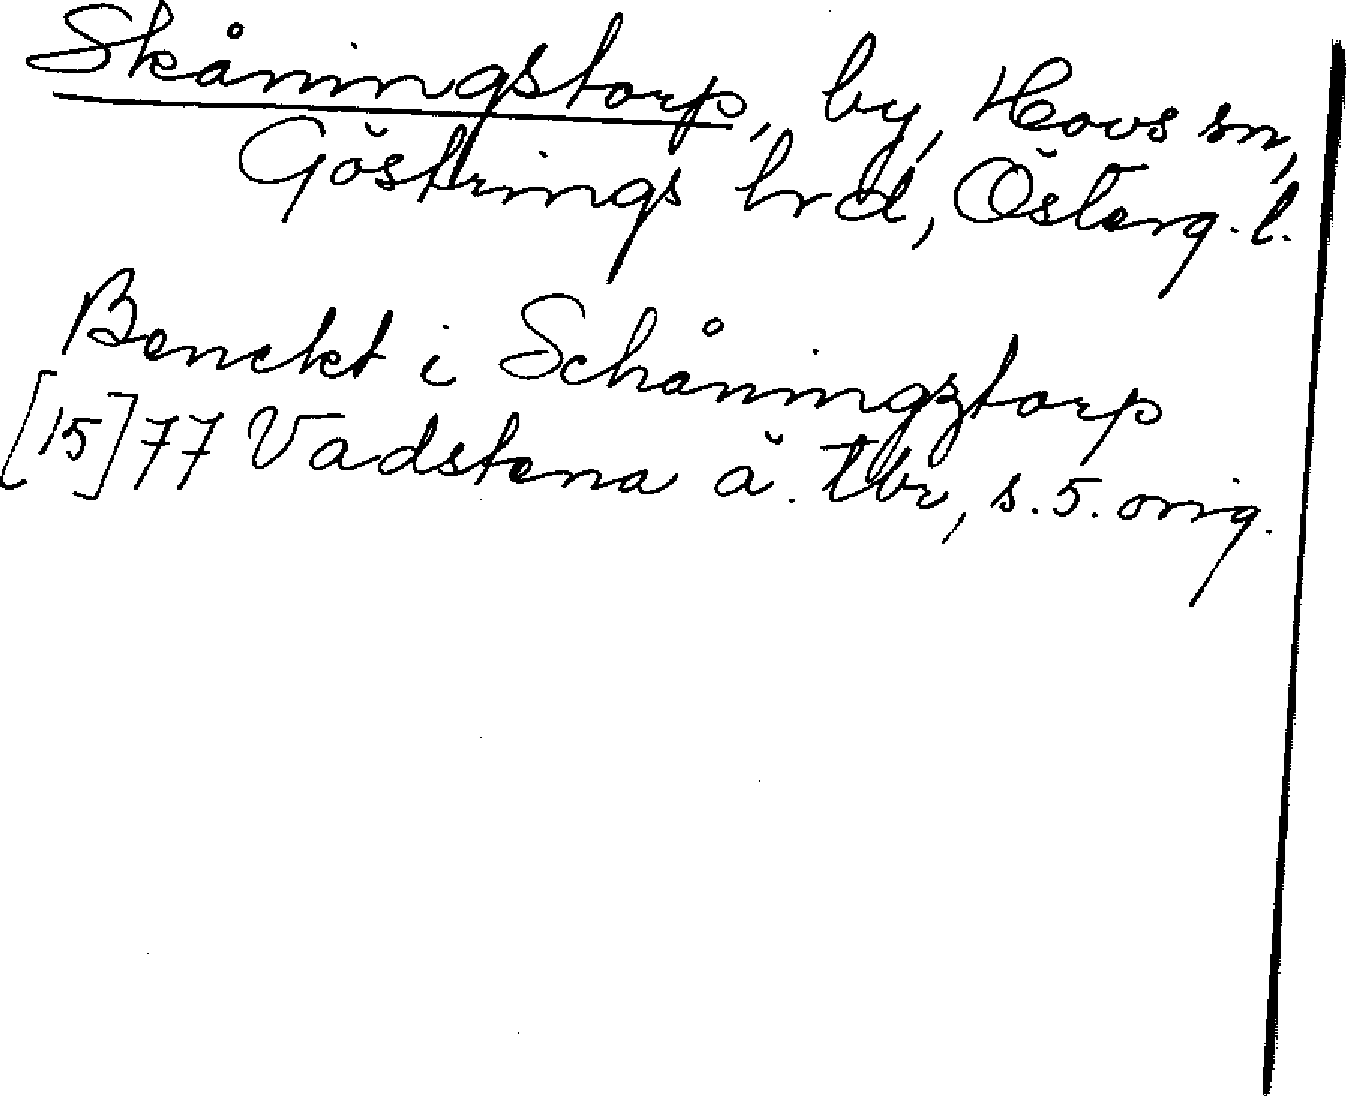 Skåningstorp, by, Hovs sn,
Göstrings hrd, Österg. l.
Benckt i Schåningztorp
[15]77 Vadstena ä. tbr, s. 5. orig.